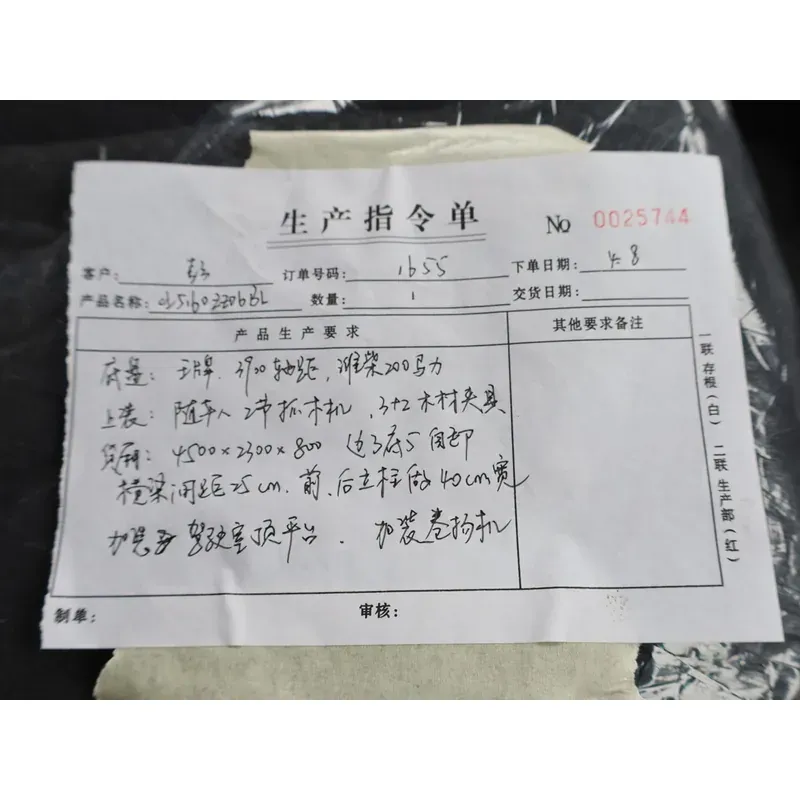 生产指令单
No 0025744
客户: 彭 订单号码: 1655 下单日期: 4.8
产品名称: 数量: 1 交货日期:
产品生产要求 其他要求备注
底盘: 王牌. 3900轴距, 潍柴200马力
上装: 随车人 2节抓木机, 3+2木材夹具
货厢: 4500×2300×800 边3底5自卸
横梁间距25cm. 前、后立柱做40cm宽
加 驾驶室顶平台. 加装卷扬机
制单: 审核:
一联存根(白) 二联生产部(红)